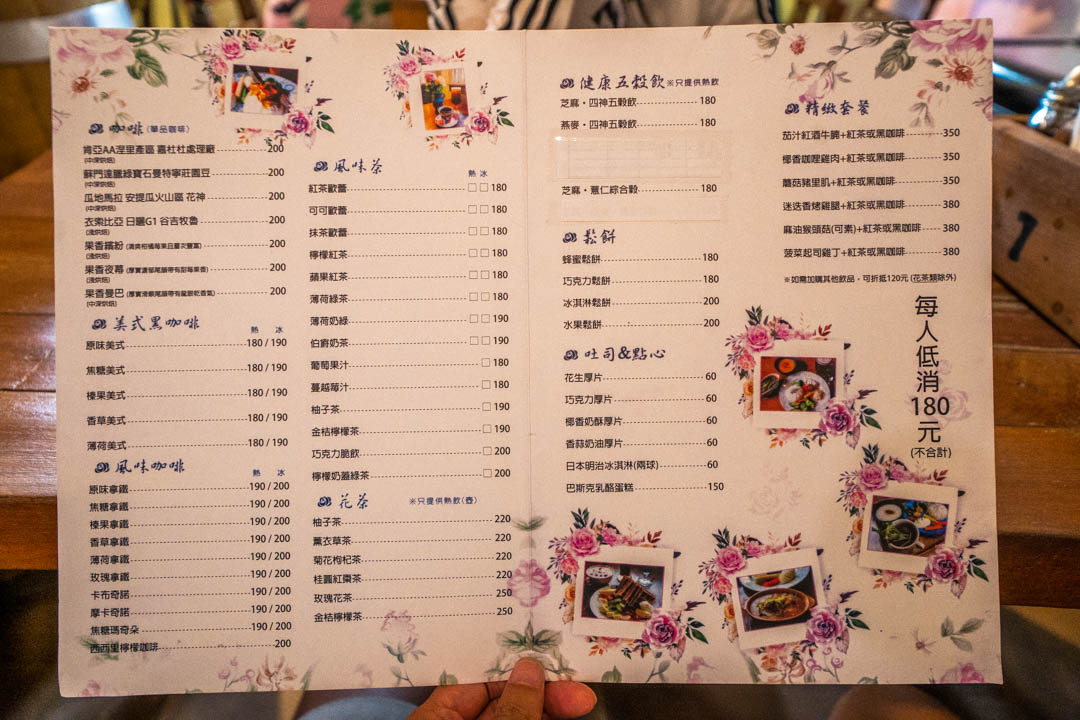 咖啡(單品咖啡)
肯亞AA涅里產區 嘉杜杜處理廠 200
(中深烘焙)
蘇門達臘綠寶石曼特寧莊園豆 200
(中深烘焙)
瓜地馬拉 安提瓜火山區 花神 200
(中深烘焙)
衣索比亞 日曬G1 谷吉牧魯 200
(淺烘焙)
果香繽紛 200
(淺烘焙)
果香夜幕 200
(淺烘焙)
果香曼巴 200
(中深烘焙)
美式黑咖啡
熱 冰
原味美式 180 / 190
焦糖美式 180 / 190
榛果美式 180 / 190
香草美式 180 / 190
薄荷美式 180 / 190
風味咖啡
熱 冰
原味拿鐵 190 / 200
焦糖拿鐵 190 / 200
榛果拿鐵 190 / 200
香草拿鐵 190 / 200
薄荷拿鐵 190 / 200
玫瑰拿鐵 190 / 200
卡布奇諾 190 / 200
摩卡奇諾 190 / 200
焦糖瑪奇朵 190 / 200
西西里檸檬咖啡 200
風味茶
熱 冰
紅茶歐蕾 □□180
可可歐蕾 □□180
抹茶歐蕾 □□180
檸檬紅茶 □□180
蘋果紅茶 □□180
薄荷綠茶 □□180
薄荷奶綠 □□190
伯爵奶茶 □□190
葡萄果汁 □180
蔓越莓汁 □180
柚子茶 □190
金桔檸檬茶 □190
巧克力脆飲 □200
檸檬奶蓋綠茶 □200
花茶 ※只提供熱飲(壺)
柚子茶 220
薰衣草茶 220
菊花枸杞茶 220
桂圓紅棗茶 220
玫瑰花茶 250
金桔檸檬茶 250
健康五穀飲 ※只提供熱飲
芝麻・四神五穀飲 180
燕麥・四神五穀飲 180
芝麻・薏仁綜合穀 180
鬆餅
蜂蜜鬆餅 180
巧克力鬆餅 180
冰淇淋鬆餅 200
水果鬆餅 200
吐司&點心
花生厚片 60
巧克力厚片 60
椰香奶酥厚片 60
香蒜奶油厚片 60
日本明治冰淇淋(兩球) 60
巴斯克乳酪蛋糕 150
精緻套餐
茄汁紅酒牛腩+紅茶或黑咖啡 350
椰香咖哩雞肉+紅茶或黑咖啡 350
蘑菇豬里肌+紅茶或黑咖啡 350
迷迭香烤雞腿+紅茶或黑咖啡 380
麻油猴頭菇(可素)+紅茶或黑咖啡 380
菠菜起司雞丁+紅茶或黑咖啡 380
※如需加購其他飲品，可折抵120元 (花茶類除外)
每人低消180元
(不合計)
1